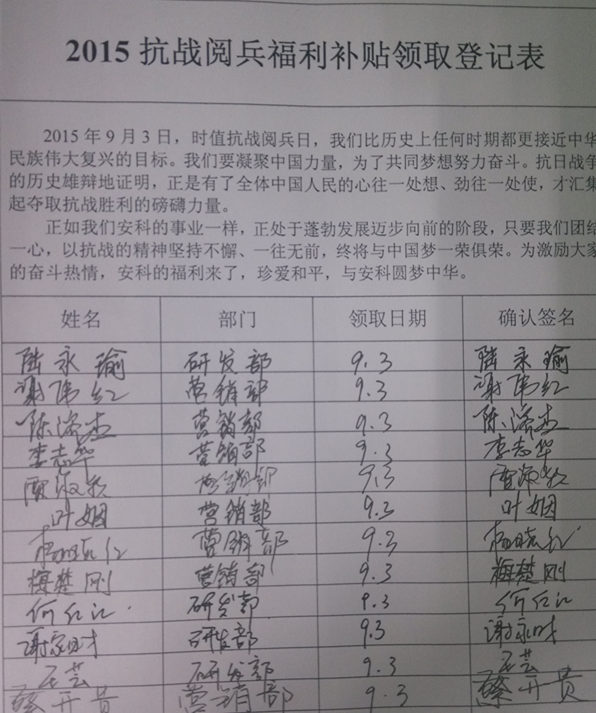 2015 抗战阅兵福利补贴领取登记表
2015 年 9 月 3 日，时值抗战阅兵日，我们比历史上任何时期都更接近中华
民族伟大复兴的目标。我们要凝聚中国力量，为了共同梦想努力奋斗。抗日战争
的历史雄辩地证明，正是有了全体中国人民的心往一处想、劲往一处使，才汇集
起夺取抗战胜利的磅礴力量。
正如我们安科的事业一样，正处于蓬勃发展迈步向前的阶段，只要我们团结
一心，以抗战的精神坚持不懈、一往无前，终将与中国梦一荣俱荣。为激励大家
的奋斗热情，安科的福利来了，珍爱和平，与安科圆梦中华。
姓名 部门 领取日期 确认签名
陆永瑜 研发部 9.3 陆永瑜
谢伟红 营销部 9.3 谢伟红
陈 杰 营销部 9.3 陈 杰
李志华 营销部 9.3 李志华
贾 营销部 9.3 贾
叶姻 营销部 9.3 叶姻
杨晓红 营销部 9.3 杨晓红
梅楚刚 营销部 9.3 梅楚刚
何红江 研发部 9.3 何红江
谢家时 研发部 9.3 谢家时
石芸 研发部 9.3 石芸
蔡开贵 营销部 9.3 蔡开贵